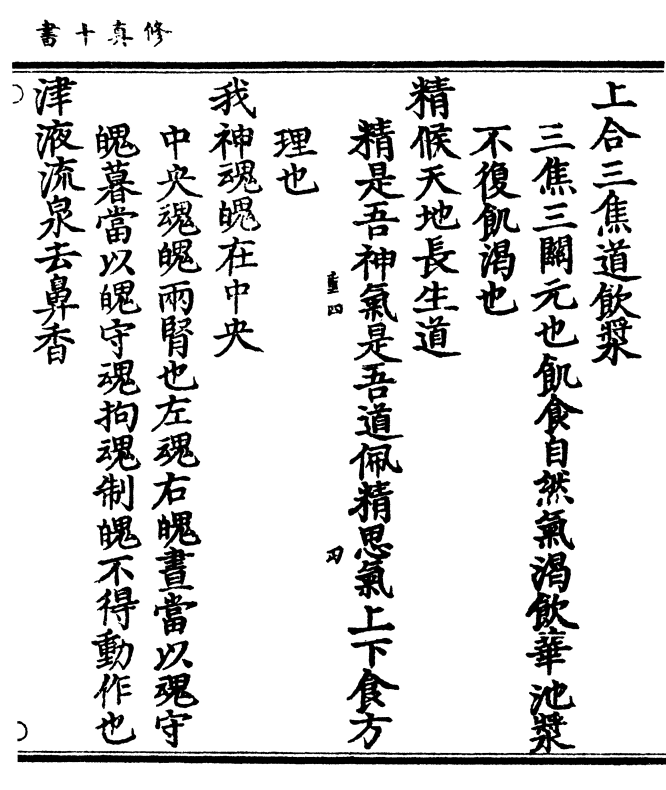 修真十書
上合三焦道飲漿
三焦三關元也飢食自然氣渴飲華池漿
不復飢渴也
精候天地長生道
精是吾神氣是吾道佩精思氣上下食方
理也
我神魂魄在中央
中央魂魄兩腎也左魂右魄晝當以魂守
魄暮當以魄守魂拘魂制魄不得動作也
津液流泉去鼻香